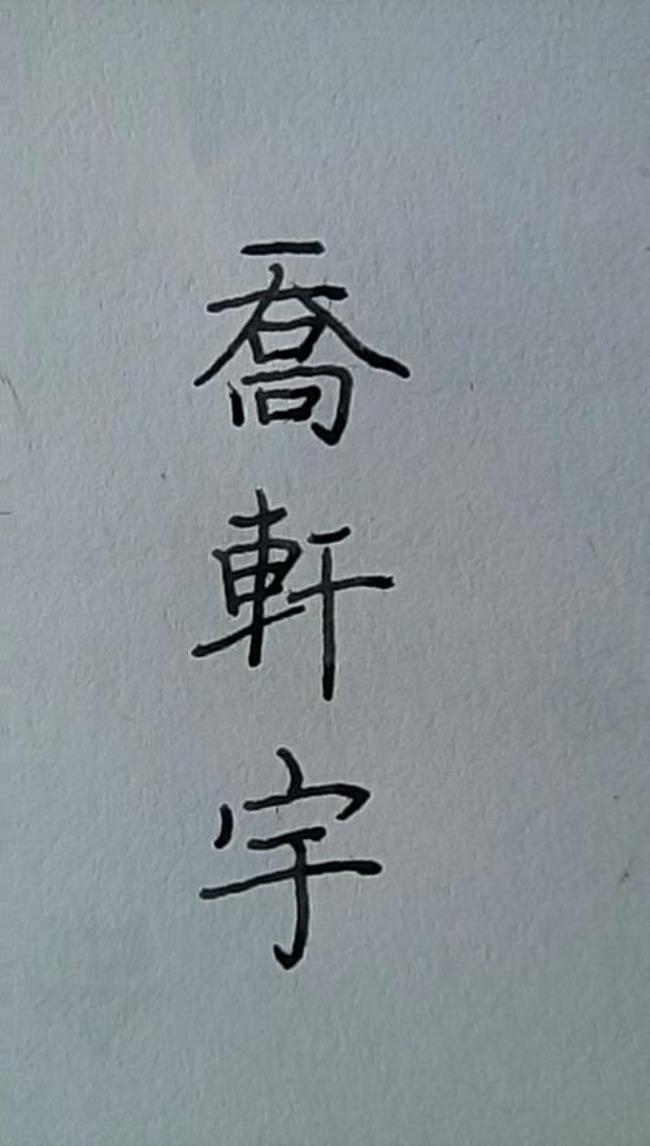 喬軒宇